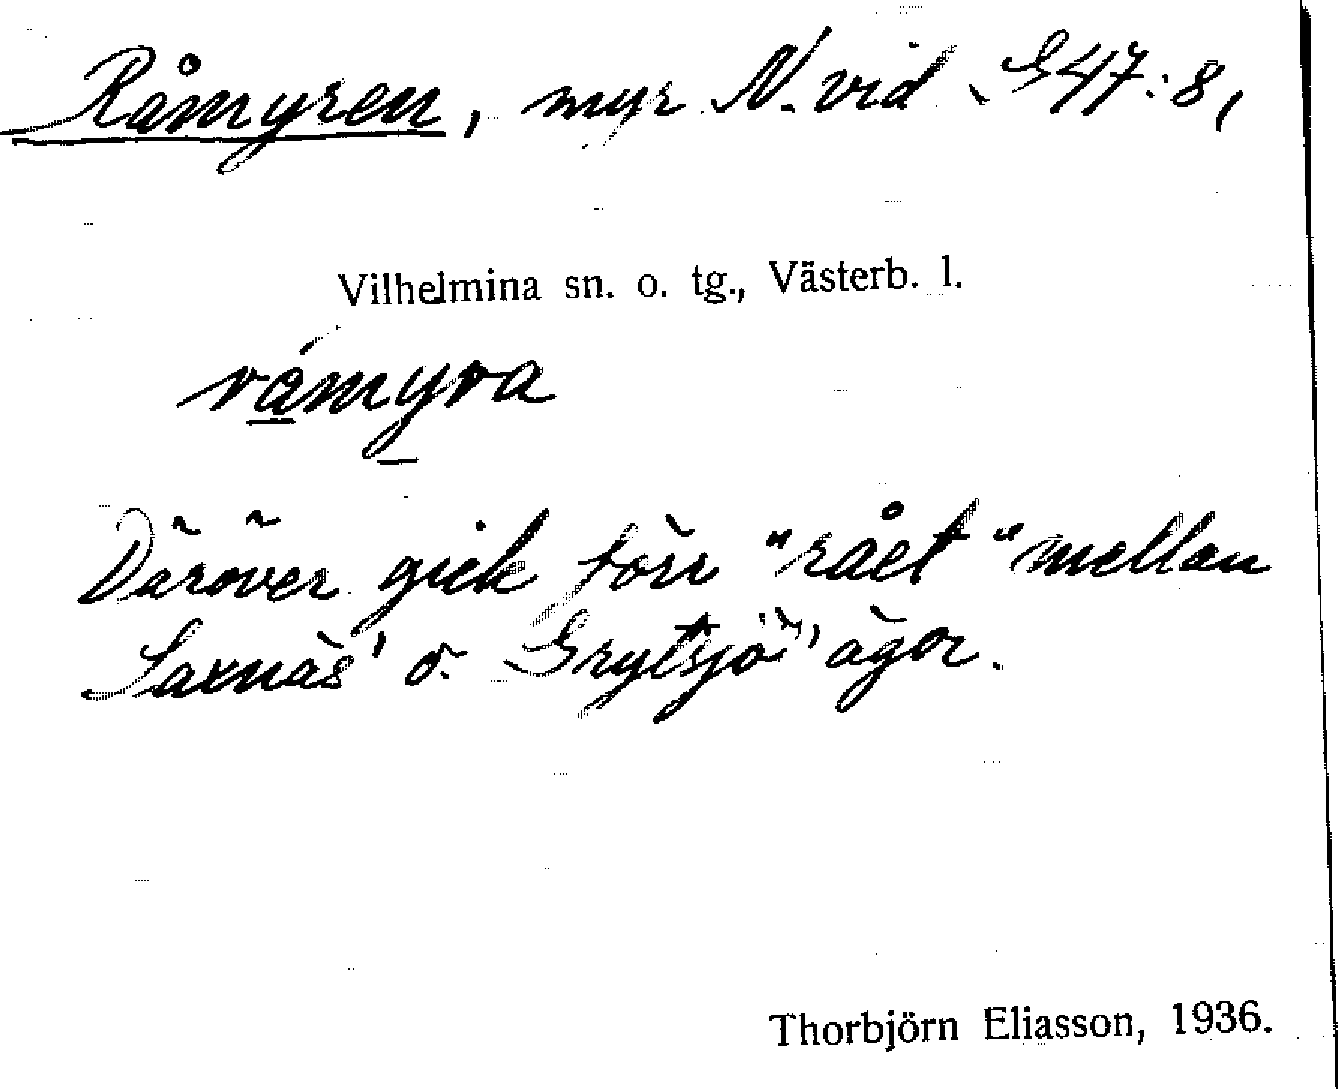 Råmyren, myr N. vid G47:8,
Vilhelmina sn. o. tg., Västerb. l.
råmyra
Däröver gick förr "rået" mellan
Saxnäs' o. Grytsjö's ägor.
Thorbjörn Eliasson, 1936.